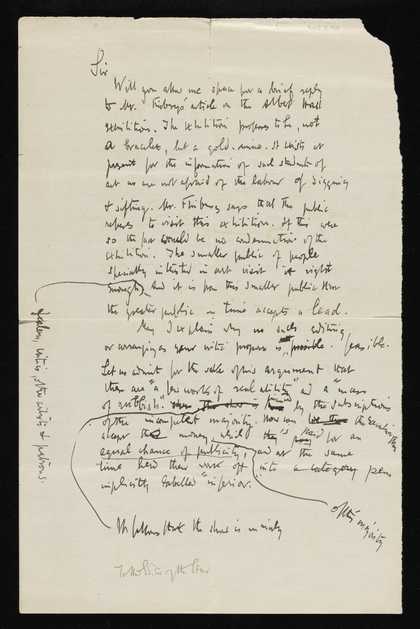 Sir
Will you allow me space for a brief reply
to Mr. article on the Albert Hall
exhibition. The exhibition proposes to be, not
a bracelet, but a gold-mine. It exists at
present for the information of such students of
art as are not afraid of the labour of digging
& sifting. Mr. says that the public
refuses to visit this exhibition. If this were
so the fact would be no condemnation of the
exhibition. The smaller public of people
specially interested in art visit it right
enough, And it is from this smaller public that
the greater public in time accepts a lead.
May I explain why no such editing
or arranging as your critic proposes is possible. feasible.
Let us admit for the sake of this argument that
there are "a few works of real ability" and a "mass
of rubbish." the show is by the subscriptions
of the incompetent majority. How can the
accept the money, while they paid for an
equal chance of publicity, and at the same
time herd their work off into a category pen
implicitly labelled "inferior.
dealers, critics, other artists & patrons.
of this majority
It follows that the show is mainly
To the Editor of the Star